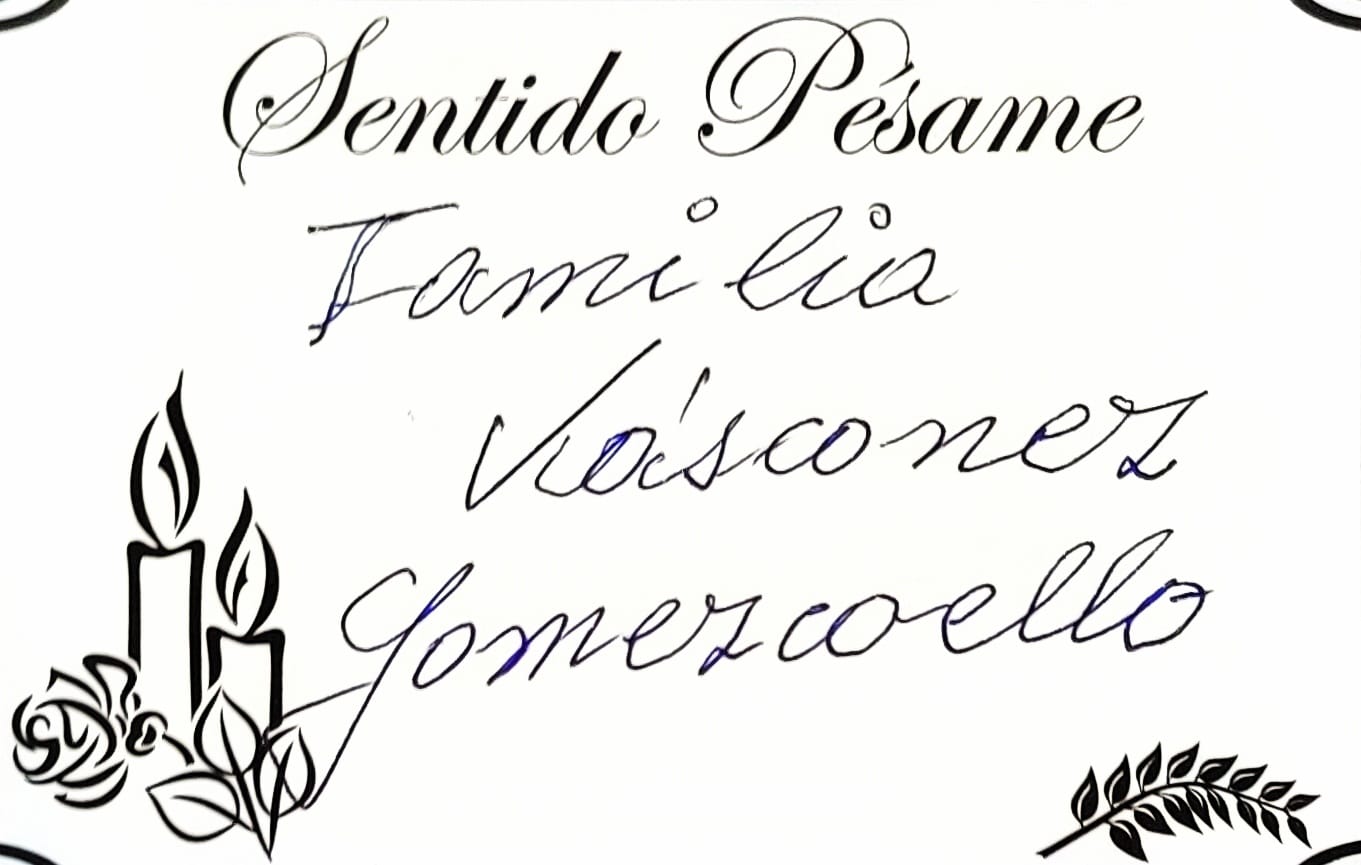 Sentido Pésame
Familia
Vásconez
Gomezcoello